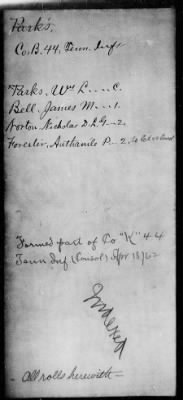 Park's.
Co. B. 44, Tenn. Inf.
Parks, Wm L.---C.
Bell, James M---1.
Norton, Nicholas D. L. G--2.
Forester, Authamile P--2,
Formed part of Co "K" 44
Tenn Inf (Consol) Apr 1862
Indexed
All rolls herewith